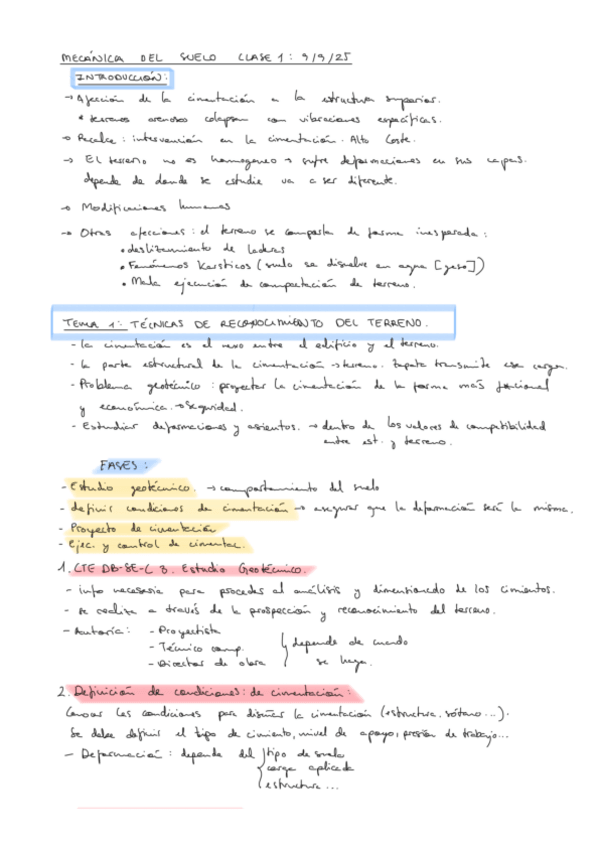 MECÁNICA DEL SUELO CLASE 1: 9/9/25
INTRODUCCIÓN:
→ Afección de la cimentación a la estructura superior.
* terrenos arenosos colapsan con vibraciones específicas.
→ Recalce: intervención en la cimentación. Alto coste.
→ El terreno no es homogeneo → sufre deformaciones en sus capas.
depende de donde se estudie va a ser diferente.
→ Modificaciones humanas
→ Otras afecciones: el terreno se comporta de forma inesperada:
• deslizamiento de laderas
• Fenómenos Karsticos (suelo se disuelve en agua [yeso])
• Mala ejecución de compactación de terreno.
TEMA 1: TÉCNICAS DE RECONOCIMIENTO DEL TERRENO.
- La cimentación es el nexo entre el edificio y el terreno.
- La parte estructural de la cimentación → terreno. Zapata transmite esa carga.
- Problema geotécnico: proyectar la cimentación de la forma más funcional
y económica. → Seguridad.
- Estudiar deformaciones y asientos. → dentro de los valores de compatibilidad
entre est. y terreno.
FASES:
- Estudio geotécnico. → comportamiento del suelo
- definir condiciones de cimentación → asegurar que la deformación será la misma.
- Proyecto de cimentación
- Ejec. y control de cimentac.
1. CTE DB-SE-C 3. Estudio Geotécnico.
- info necesaria para proceder al análisis y dimensionado de los cimientos.
- se realiza a través de la prospección y reconocimiento del terreno.
- Autoría: - Proyectista
- Técnico comp. } depende de cuando
- Director de obra se haga.
2. Definición de condiciones: de cimentación:
Conocer las condiciones para diseñar la cimentación (estructura, sótano...).
Se debe definir el tipo de cimiento, nivel de apoyo, presión de trabajo...
- Deformación: depende del { tipo de suelo
carga aplicada
estructura...